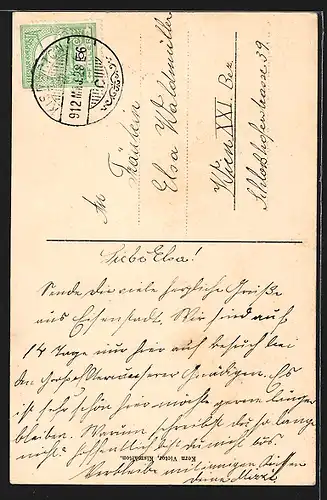 912 MÁJ. 28
An Fräulein
Elsa Waldmüller
Wien XXI. Bez
Schloßhoferstrasse 39.
Liebe Elsa!
Sende Dir viele herzliche Grüße
aus Eisenstadt. Wir sind auf
14 Tage nur hier auf Besuch bei
den Gnädigen. Es
ist sehr schön hier möchte gerne länger
bleiben. Warum schreibst du so lange
nicht? hoffentlich bist du nicht bös.
Verbleibe mit innigen Küssen
deine
Kern Victor, Kismárton